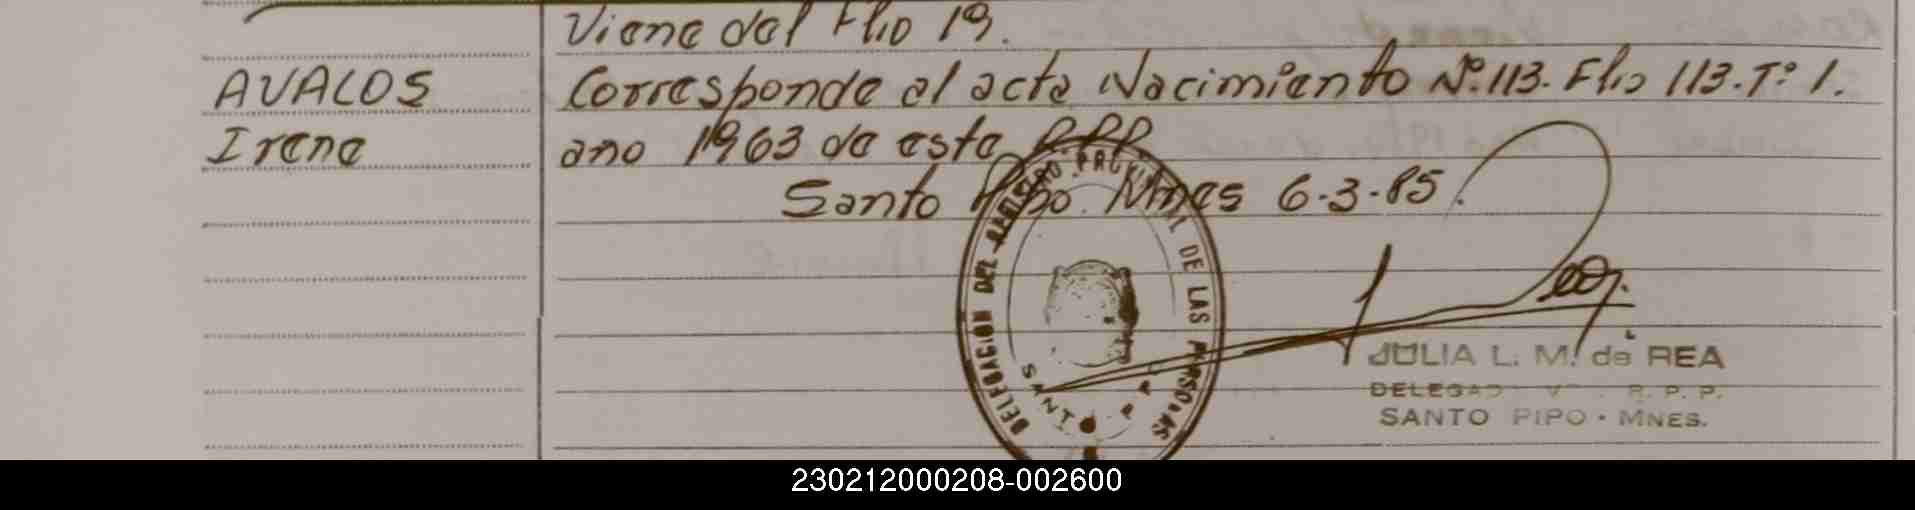 Viene del Flio 19.
AVALOS
Irene
Corresponde al acta Nacimiento Nº.113. Flio 113.Tº 1.
ano 1963 de este R.P.P.
Santo Pipo. Mnes 6-3-85.
DELEGACION DEL REGISTRO PROVINCIAL DE LAS PERSONAS
SANTO PIPO
JULIA L. M. de REA
R. P. P.
SANTO PIPO - MNES.
230212000208-002600